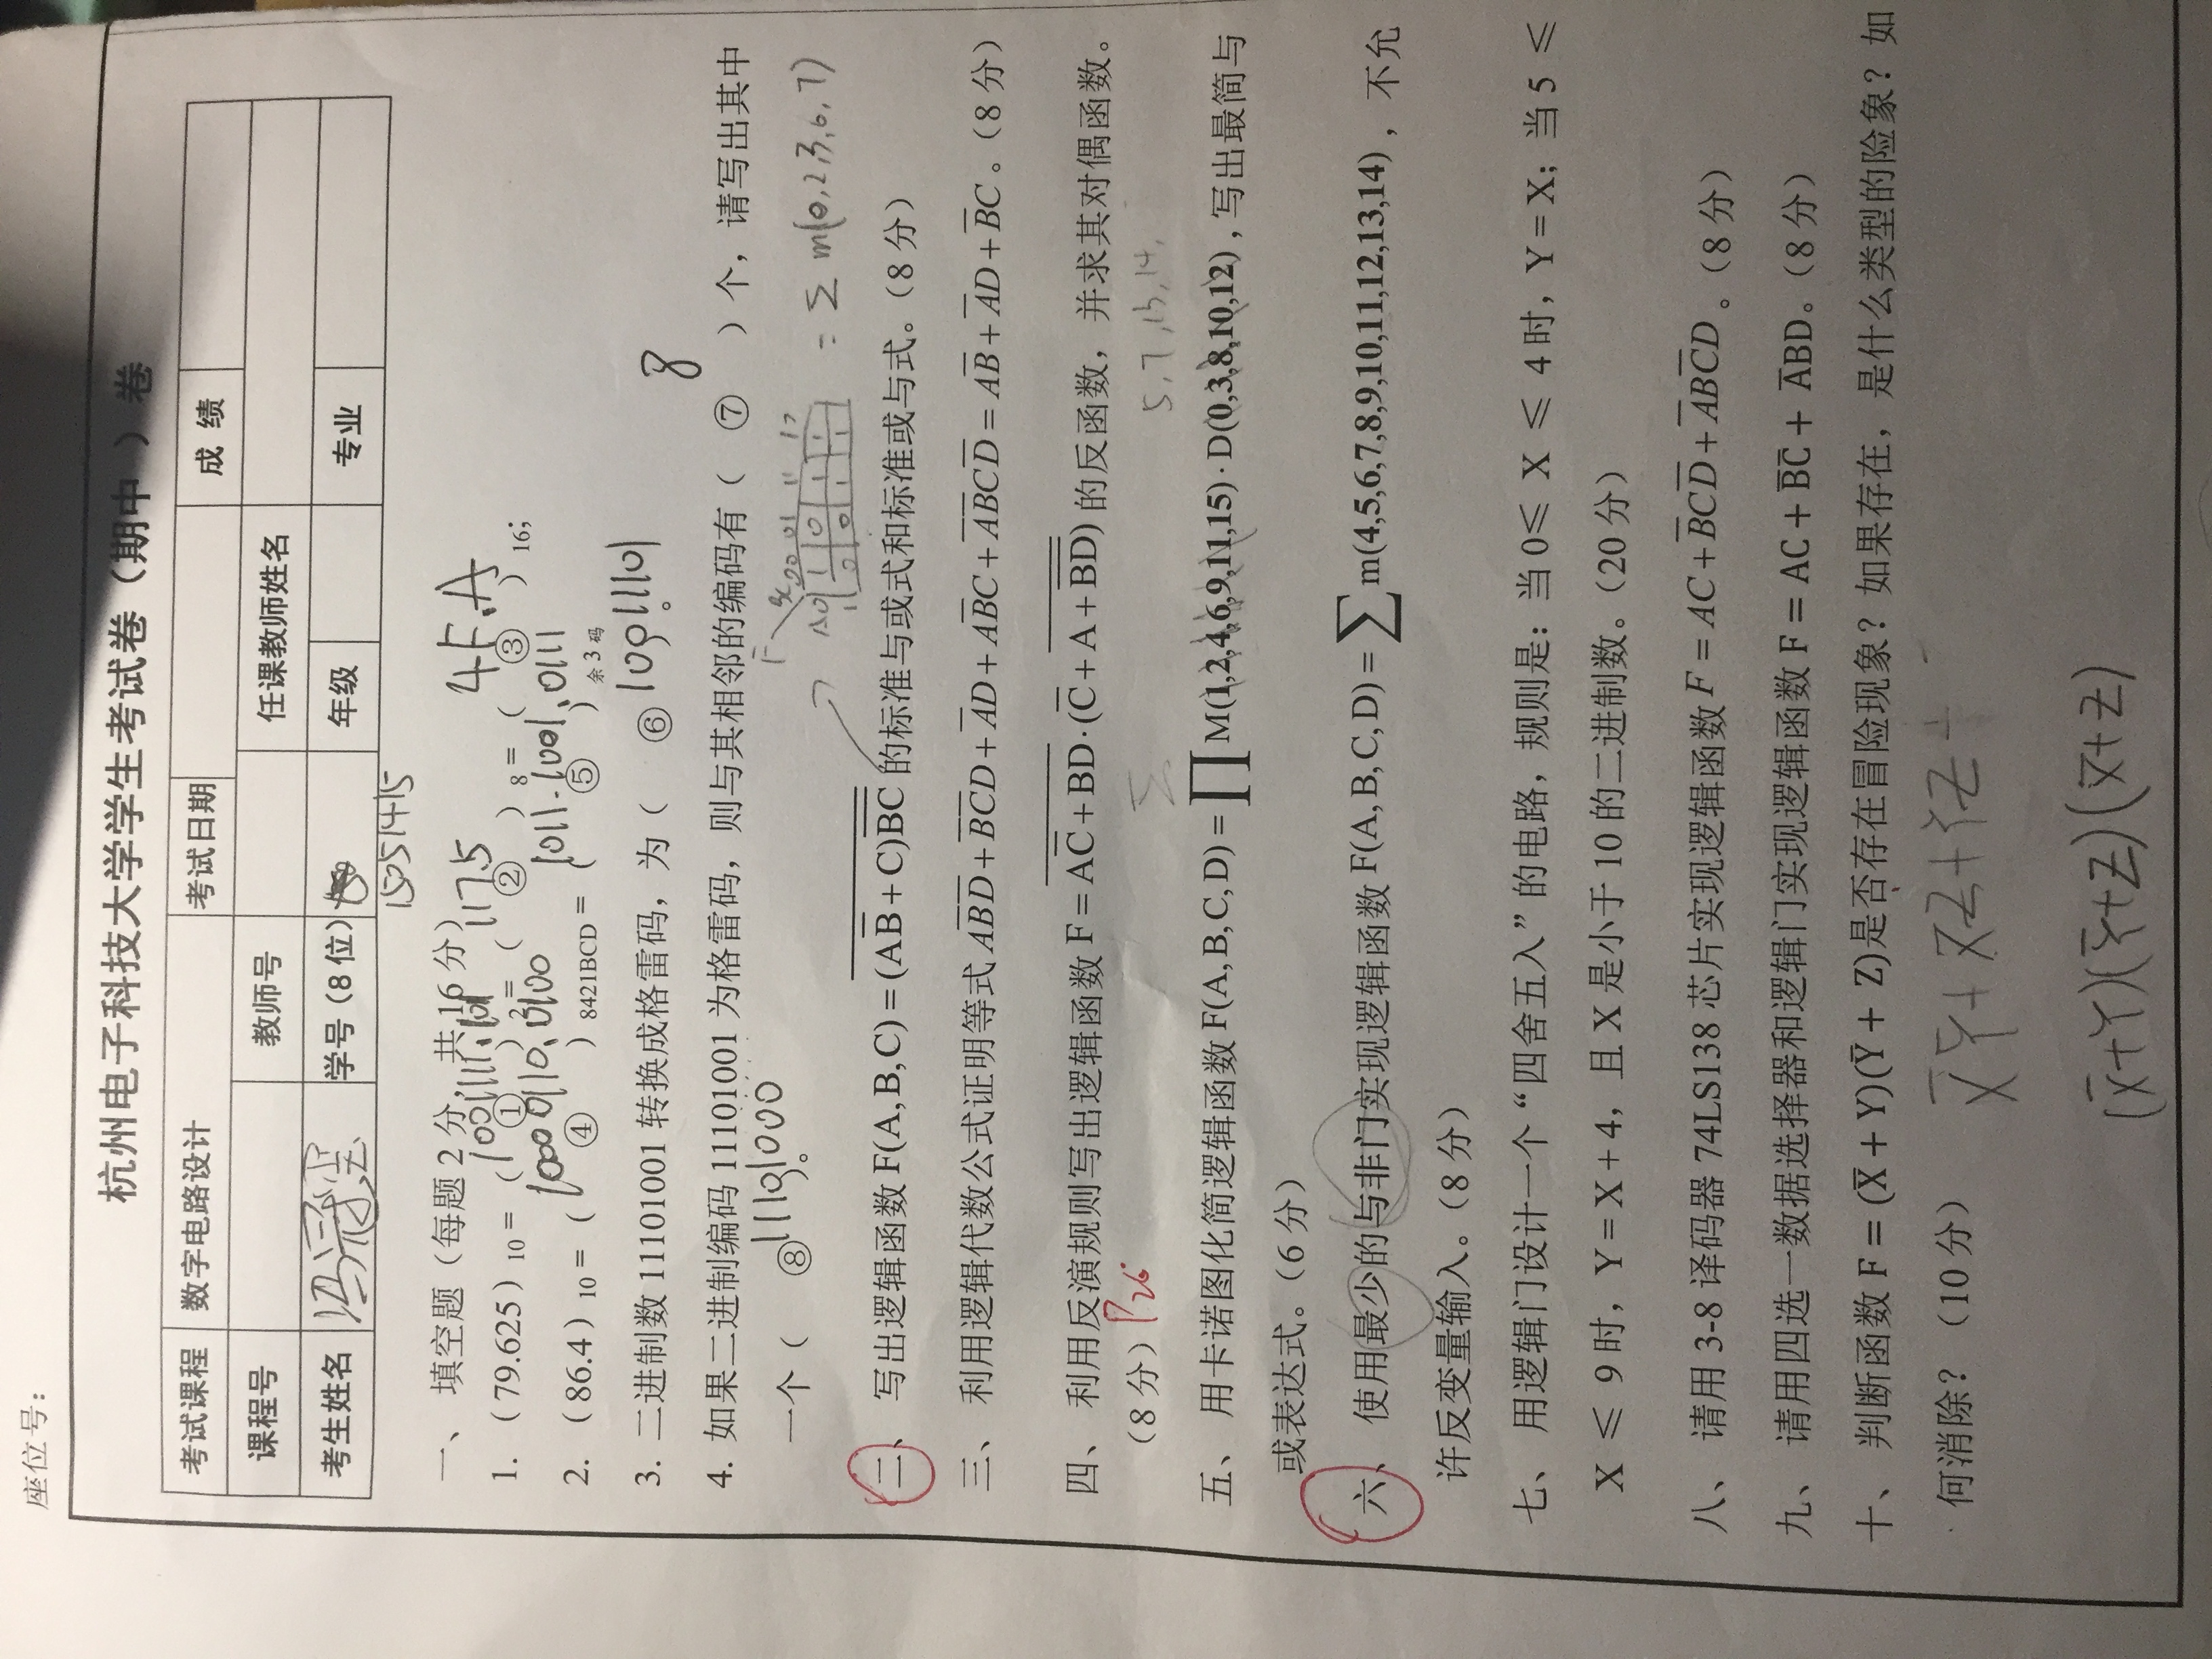 座位号：
杭州电子科技大学学生考试卷（期中 ）卷
考试课程 数字电路设计 考试日期 成 绩
课程号 教师号 任课教师姓名
考生姓名 冯冠玺 学号（8位） 年级 专业
15051415
一、 填空题（每题 2 分， 共 16 分）
1001111.101 117.5 4F.A
1. （79.625）10 =（ ① ）2 =（ ② ）8 =（ ③ ）16;
10000110.0100 1011.1001.0111
2. （86.4）10 =（ ④ ）8421BCD =（ ⑤ ）余 3 码
3. 二进制数 11101001 转换成格雷码，为（ ⑥ 10011101 ）。
8
4. 如果二进制编码 11101001 为格雷码，则与其相邻的编码有（ ⑦ ）个，请写出其中
一个（ ⑧ 11101000 ）。
F BC 00 01 11 10
A0 1 0 1 1 = Σ m(0,2,3,6,7)
1 0 0 1 1
二、 写出逻辑函数 F(A, B, C) = \overline{(A\overline{B} + C)\overline{\overline{BC}}} 的标准与或式和标准或与式。（8 分）
三、 利用逻辑代数公式证明等式 A\overline{B}\overline{D} + \overline{B}\overline{C}D + \overline{A}D + A\overline{B}C + \overline{A}\overline{B}C\overline{D} = A\overline{B} + \overline{A}D + \overline{B}C 。（8 分）
四、 利用反演规则写出逻辑函数 F = \overline{A\overline{C} + BD}·(\overline{C} + \overline{A + \overline{\overline{BD}}}) 的反函数，并求其对偶函数。
（8 分） P26
Σ 5, 7, 13, 14,
五、 用卡诺图化简逻辑函数 F(A, B, C, D) = ∏ M(1,2,4,6,9,11,15) · D(0,3,8,10,12) ，写出最简与
或表达式。（6 分）
六、 使用最少的与非门实现逻辑函数 F(A, B, C, D) = ∑ m(4,5,6,7,8,9,10,11,12,13,14) ，不允
许反变量输入。（8 分）
七、 用逻辑门设计一个“四舍五入”的电路，规则是：当 0≤ X ≤ 4 时，Y = X；当 5 ≤
X ≤ 9 时，Y = X + 4，且 X 是小于 10 的二进制数。（20 分）
八、 请用 3-8 译码器 74LS138 芯片实现逻辑函数 F = AC + \overline{B}C\overline{D} + \overline{A}B\overline{C}D 。（8 分）
九、 请用四选一数据选择器和逻辑门实现逻辑函数 F = AC + \overline{B}\overline{C} + \overline{A}BD。（8 分）
十、 判断函数 F = (\overline{X} + Y)(\overline{Y} + Z)是否存在冒险现象？如果存在，是什么类型的险象？如
何消除？（10 分）
\overline{X}\overline{Y} + \overline{X}Z + YZ +
(\overline{X}+Y)(\overline{Y}+Z)(\overline{X}+Z)